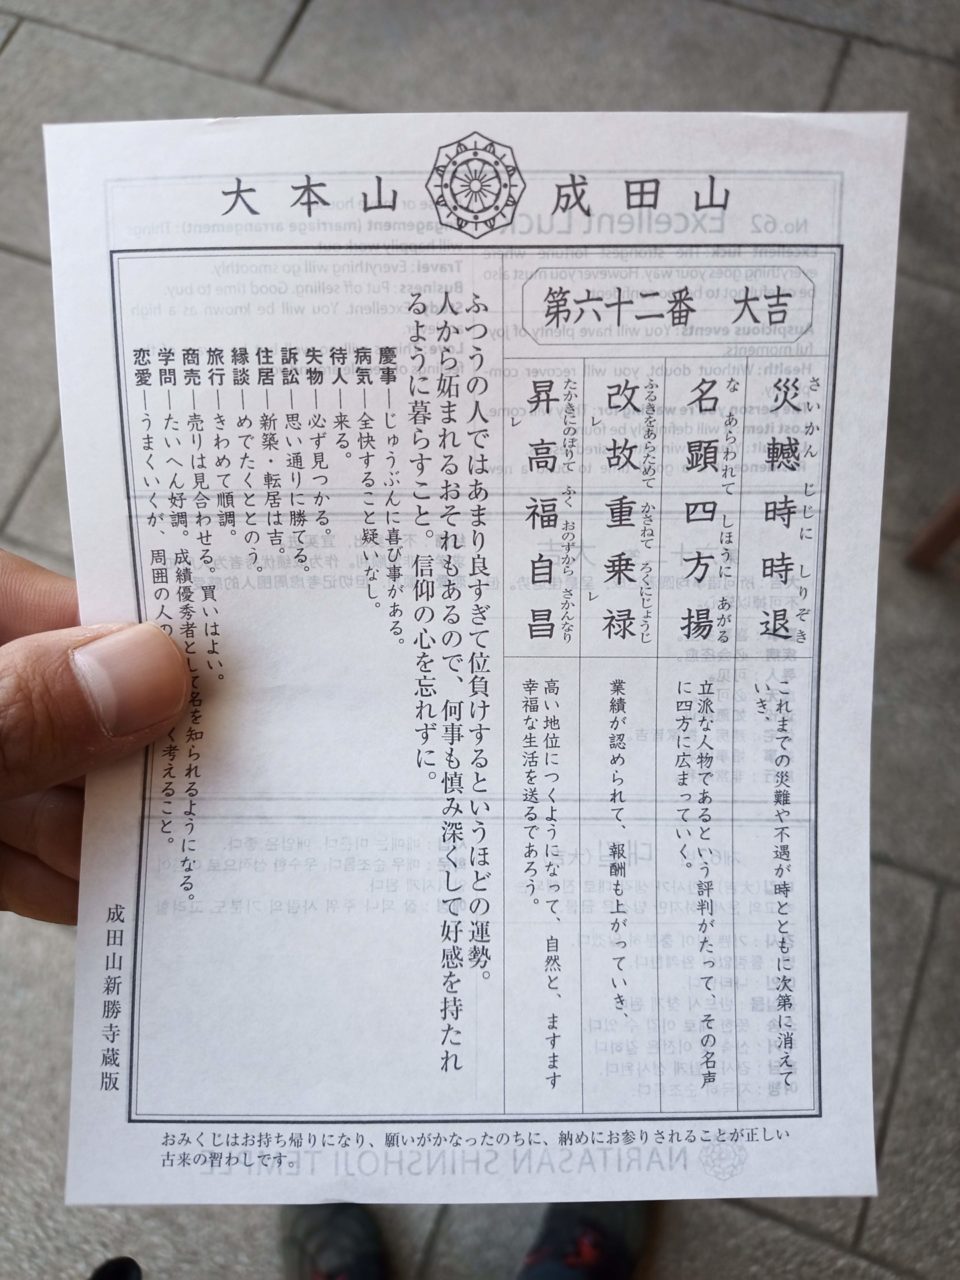 大本山 成田山
第六十二番 大吉
災轗時時退
さいかん じじに しりぞき
これまでの災難や不遇が時とともに次第に消えて
いき、
名顕四方揚
な あらわれて しほうに あがる
立派な人物であるという評判がたって、その名声
に四方に広まっていく。
改故重乗禄
ふるきをあらためて かさねて ろくにじょうじ
レ
レ
業績が認められて、報酬も上がっていき、
昇高福自昌
たかきにのぼりて ふく おのずから さかんなり
レ
高い地位につくようになって、自然と、ますます
幸福な生活を送るであろう。
ふつうの人ではあまり良すぎて位負けするというほどの運勢。
人から妬まれるおそれもあるので、何事も慎み深くして好感を持たれ
るように暮らすこと。信仰の心を忘れずに。
慶事―じゅうぶんに喜び事がある。
病気―全快すること疑いなし。
待人―来る。
失物―必ず見つかる。
訴訟―思い通りに勝てる。
住居―新築・転居は吉。
縁談―めでたくととのう。
旅行―きわめて順調。
商売―売りは見合わせる。買いはよい。
学問―たいへん好調。成績優秀者として名を知られるようになる。
恋愛―うまくいくが、周囲の人の く考えること。
成田山新勝寺蔵版
おみくじはお持ち帰りになり、願いがかなったのちに、納めにお参りされることが正しい
古来の習わしです。